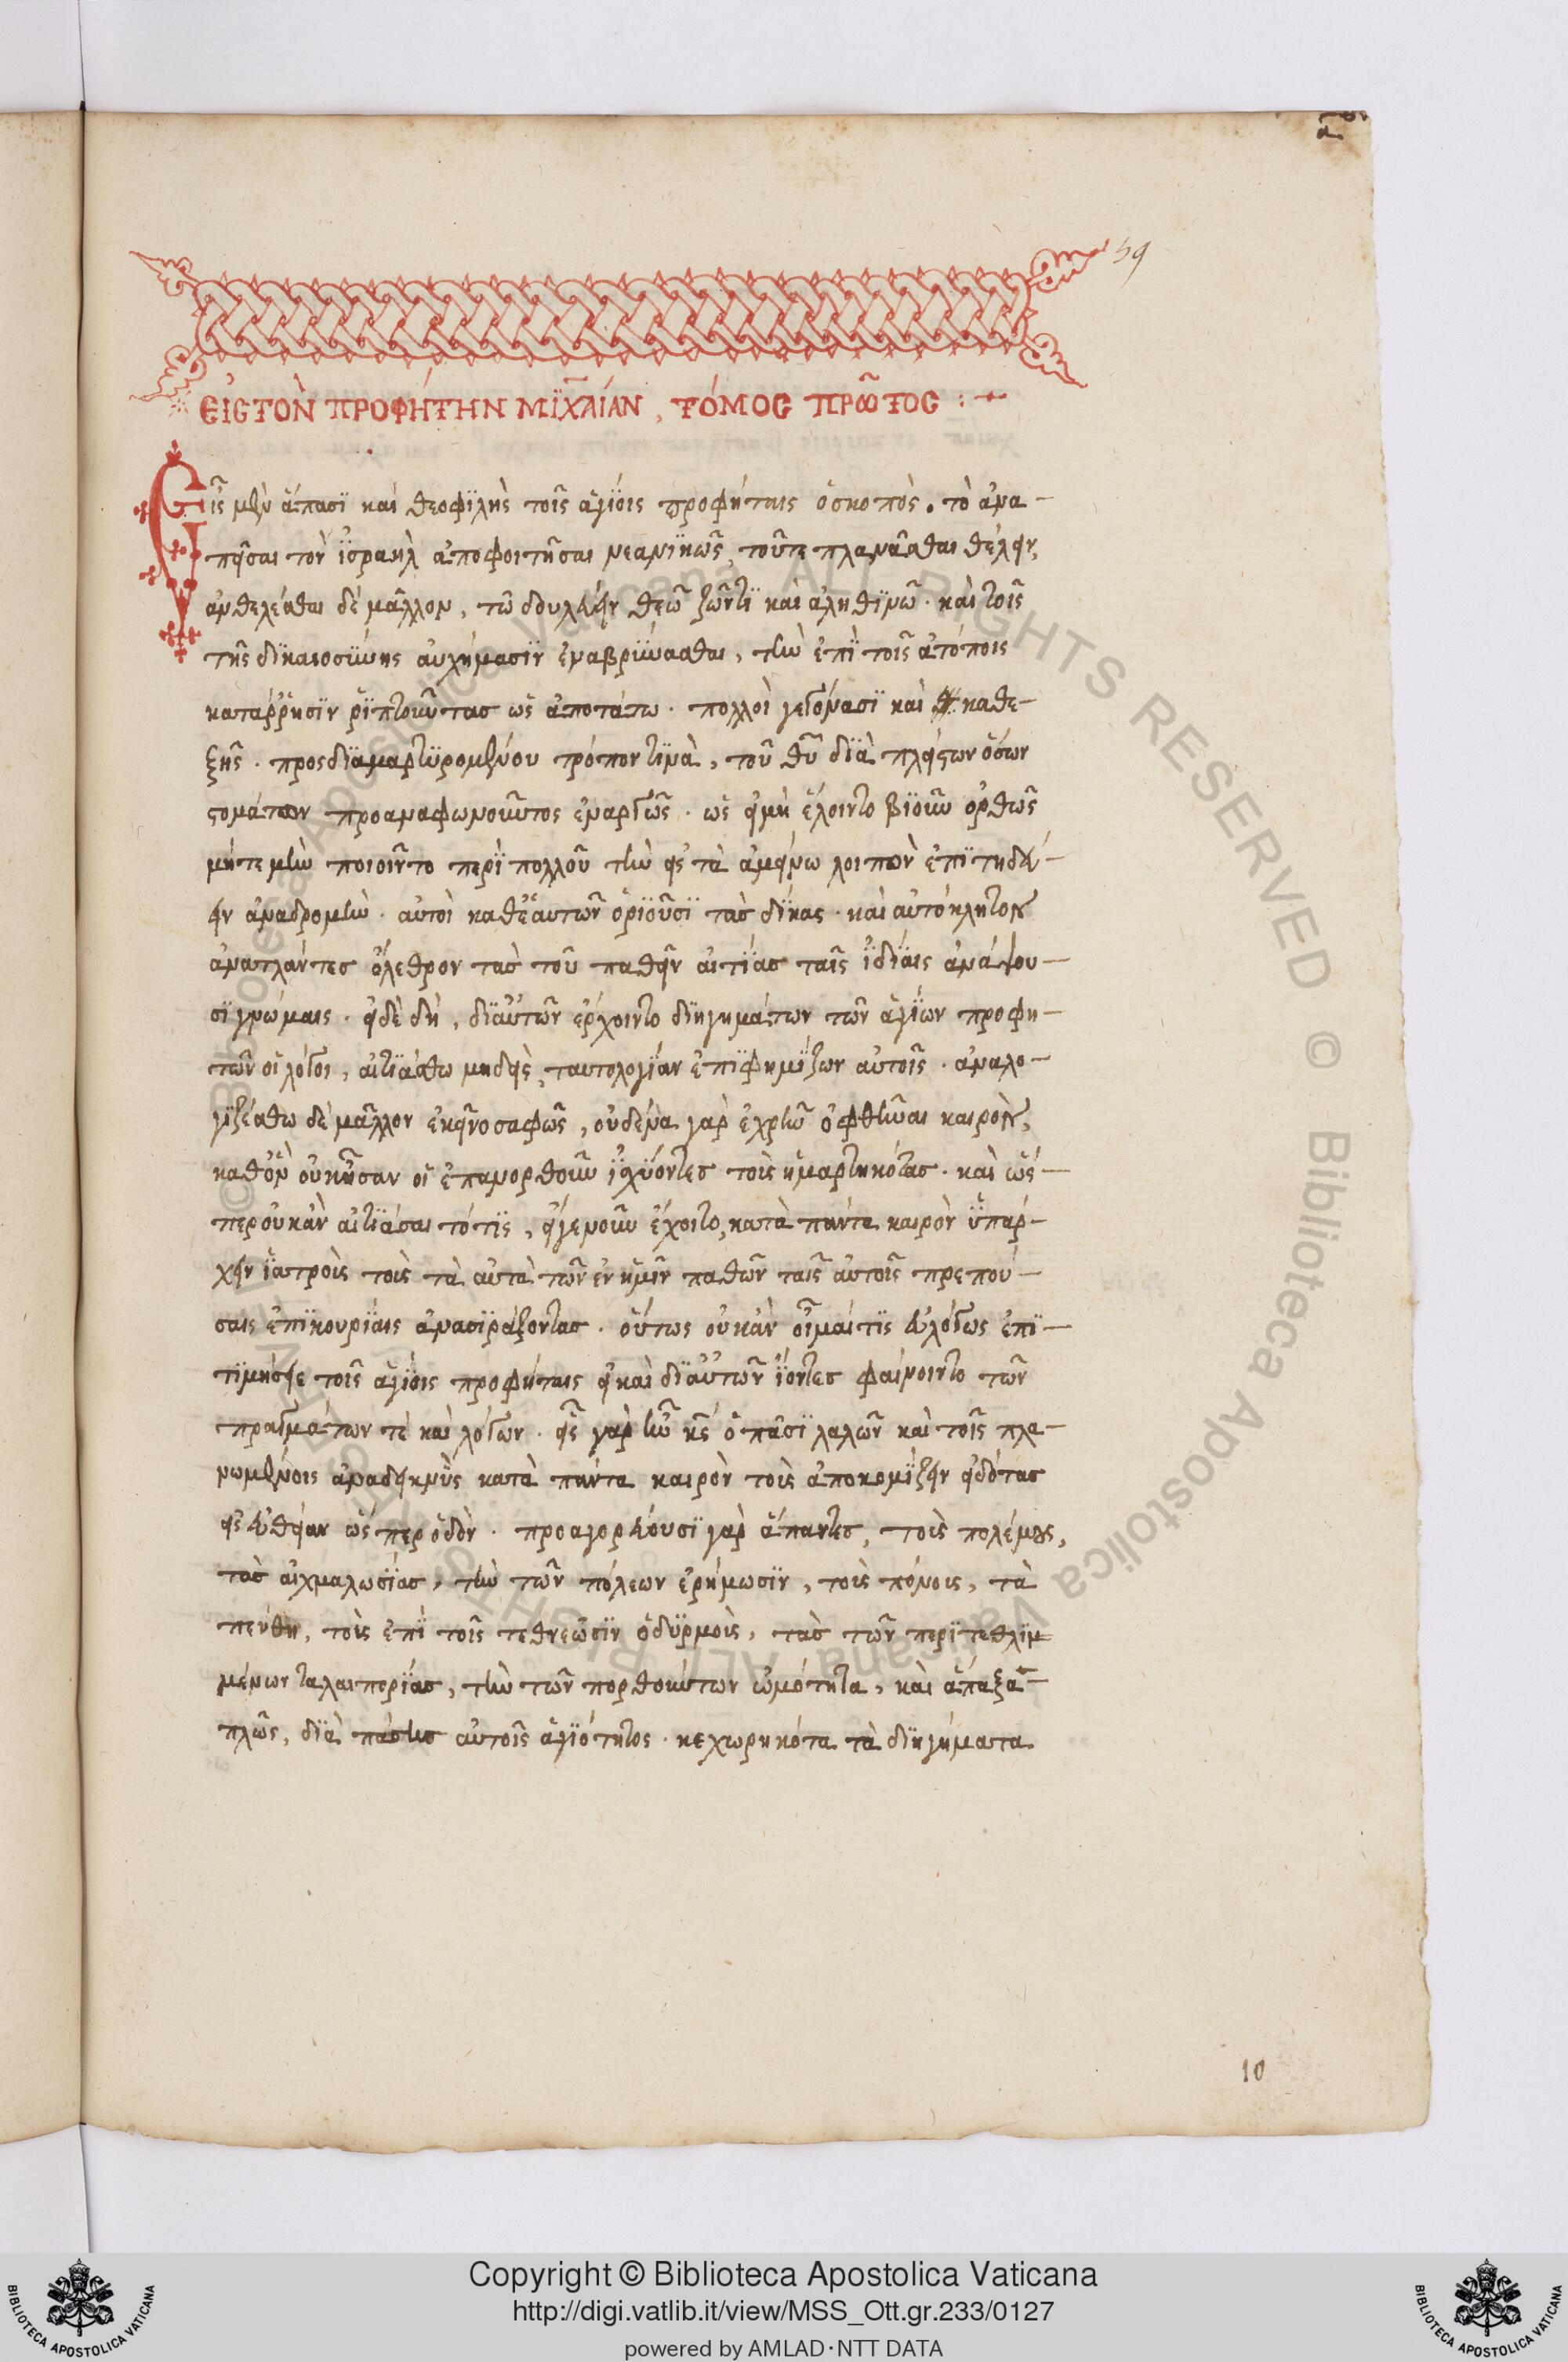 59
ΕἸΣ ΤῸΝ ΠΡΟΦΉΤΗΝ ΜΪΧΑΊΑΝ, ΤΌΜΟΣ ΠΡΩ͂ΤΟΣ :
Εἷς μὲν ἅπασϊ καὶ θεοφϊλὴς τοῖς ἁγϊοις προφήταις ὁ σκοπὸς. τὸ ἀνα-
πεῖσαι τὸν ϊσραὴλ ἀποφοιτῆσαι νεανϊκῶς, τοῦτε πλανᾶσθαι θέλειν,
ἀνθελέσθαι δὲ μᾶλλον, τῶ δουλεύειν θεῶ ζῶντϊ καὶ ἀληθϊνῶ. καὶ τοῖς
τῆς δϊκαιοσϋνης αὐχήμασϊν ἐναβρϋνεσθαι, τὴν ἐπὶ τοῖς ἀτόποις
κατάρρησϊν ῥϊπτοῦντας ὡς ἀποτάτω. πολλοὶ γεγόνασϊ καὶ καθε-
ξῆς. προσδϊαμαρτϋρομένου τρόπον τϊνὰ, τοῦ θῦ δϊὰ πλείστων ὅσων
στομάτων προαναφωνοῦντος ἐναργῶς. ὡς εἰ μὴ ἕλοιντο βϊοῦν ὀρθῶς
μήτε μὴν ποιοῖντο περὶ πολλοῦ τὴν εἰς τὰ ἀμείνω λοιπὸν ἐπϊτηδεύ-
ειν ἀναδρομὴν. αὐτοὶ καθ' ἑαυτῶν ὁρϊοῦσϊ τὰς δϊκας. καὶ αὐτόκλητον
ἀνατλάντες ὄλεθρον τὰς τοῦ παθεῖν αἰτϊας ταῖς ϊδϊαις ἀνάψου-
σϊ γνώμαις. εἰ δὲ δὴ, δϊ αὐτῶν ἔρχοιντο δϊηγημάτων τῶν ἁγϊων προφη-
τῶν οἱ λόγοι, αἰτϊάσθω μηδεὶς, ταυτολογϊαν ἐπϊφημϊζων αὐτοῖς. ἀναλο-
γϊζέσθω δὲ μᾶλλον ἐκεῖνο σαφῶς, οὐδένα γὰρ ἐχρῆν ὀφθῆναι καιρὸν,
καθ' ὃν οὐκ ἦσαν οἱ ἐπανορθοῦν ϊσχϋοντες τοὺς ἡμαρτηκότας. καὶ ὥσ-
περ οὐκ ἂν αἰτϊάσαιτό τϊς, εἴγε νοῦν ἔχοιτο, κατὰ πάντα καιρὸν ὑπάρ-
χειν ϊατροὺς τοὺς τὰ αὐτὰ τῶν ἐν ἡμῖν παθῶν ταῖς αὐτοῖς πρεπού-
σαις ἐπϊκουρϊαις ἀνασϊράζοντας. οὕτως οὐκ ἂν οἶμαί τϊς εὐλόγως ἐπϊ-
τϊμήσειε τοῖς ἁγϊοις προφήταις εἰ καὶ δϊ αὐτῶν ϊόντες φαίνοιντο τῶν
πραγμάτων τὲ καὶ λόγων. εἷς γὰρ ἦν κς ὁ πᾶσϊ λαλῶν καὶ τοῖς πλα-
νωμένοις ἀναδεικνὺς κατὰ πάντα καιρὸν τοὺς ἀποκομϊζειν εἰδότας
εἰς εὐθεῖαν ὥσπερ ὁδὸν. προαγορεύουσϊ γὰρ ἅπαντες, τοὺς πολέμους,
τὰς αἰχμαλωσϊας, τὴν τῶν πόλεων ἐρήμωσϊν, τοὺς πόνους, τὰ
πένθη, τοὺς ἐπὶ τοῖς τεθνεῶσϊν ὀδϋρμοὺς, τὰς τῶν περϊτεθλϊμ-
μένων ταλαιπορϊας, τὴν τῶν πορθούντων ὠμότητα, καὶ ἁπαξα-
πλῶς, δϊὰ πάσης αὐτοῖς ἁγϊότητος. κεχωρηκότα τὰ δϊηγήματα
10
Copyright © Biblioteca Apostolica Vaticana
http://digi.vatlib.it/view/MSS_Ott.gr.233/0127
powered by AMLAD·NTT DATA